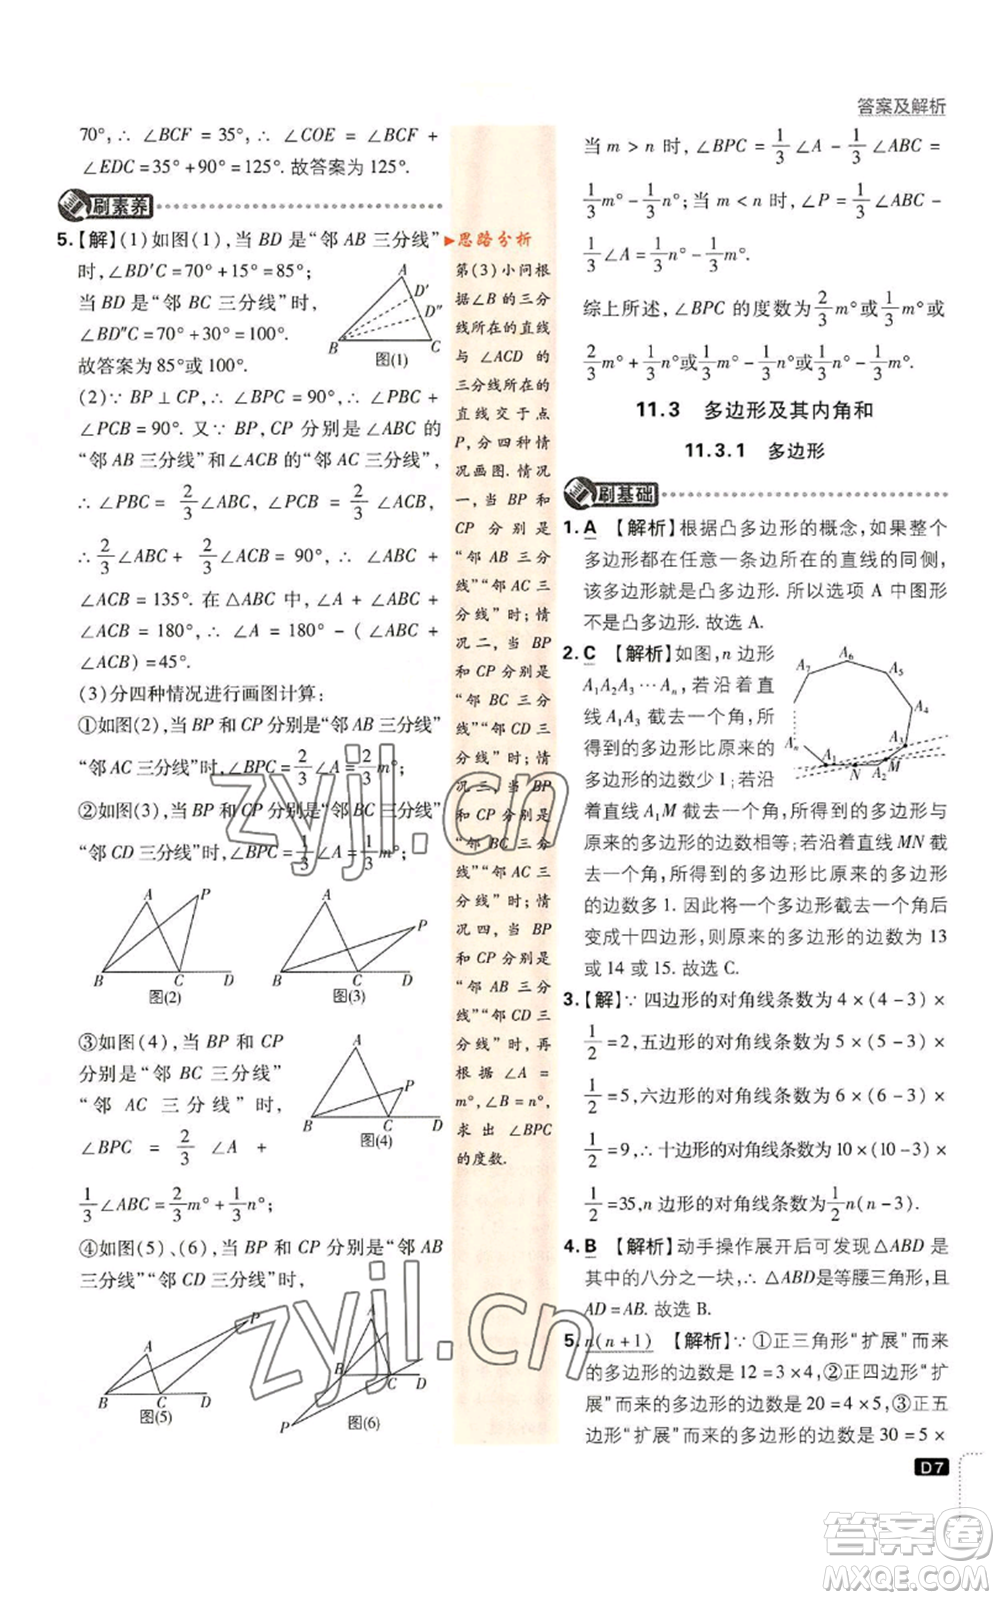 答案及解析
70°,∴ ∠BCF = 35°,∴ ∠COE = ∠BCF +
∠EDC = 35° + 90° = 125°. 故答案为 125°.
刷素养
5.【解】(1)如图(1),当 BD 是“邻 AB 三分线”
时,∠BD′C = 70° + 15° = 85°;
当 BD 是“邻 BC 三分线”时,
∠BD″C = 70° + 30° = 100°.
故答案为 85°或 100°.
A
D′
D″
B
C
图(1)
(2)∵ BP ⊥ CP, ∴ ∠BPC = 90°, ∴ ∠PBC +
∠PCB = 90°. 又∵ BP,CP 分别是∠ABC 的
“邻 AB 三分线”和∠ACB 的“邻 AC 三分线”,
∴ ∠PBC = 2/3 ∠ABC, ∠PCB = 2/3 ∠ACB,
∴ 2/3 ∠ABC + 2/3 ∠ACB = 90°, ∴ ∠ABC +
∠ACB = 135°. 在 △ABC 中,∠A + ∠ABC +
∠ACB = 180°, ∴ ∠A = 180° − (∠ABC +
∠ACB) = 45°.
(3)分四种情况进行画图计算:
①如图(2),当 BP 和 CP 分别是“邻 AB 三分线”
“邻 AC 三分线”时,∠BPC = 2/3 ∠A = 2/3 m°;
②如图(3),当 BP 和 CP 分别是“邻 BC 三分线”
“邻 CD 三分线”时,∠BPC = 1/3 ∠A = 1/3 m°;
A
P
B
C
D
图(2)
A
P
B
C
D
图(3)
③如图(4),当 BP 和 CP
分别是“邻 BC 三分线”
“邻 AC 三分线”时,
∠BPC = 2/3 ∠A +
1/3 ∠ABC = 2/3 m° + 1/3 n°;
A
P
B
C
D
图(4)
④如图(5)、(6),当 BP 和 CP 分别是“邻 AB
三分线”“邻 CD 三分线”时,
P
A
B
C
D
图(5)
A
B
C
D
P
图(6)
思路分析
第(3)小问根
据∠B 的三分
线所在的直线
与 ∠ACD 的
三分线所在的
直线交于点
P,分四种情
况画图. 情况
一,当 BP 和
CP 分别是
“邻 AB 三分
线”“邻 AC 三
分线”时;情
况二,当 BP
和 CP 分别是
“邻 BC 三分
线”“邻 CD 三
分线”时;情
况三,当 BP
和 CP 分别是
“邻 BC 三分
线”“邻 AC 三
分线”时;情
况四,当 BP
和 CP 分别是
“邻 AB 三分
线”“邻 CD 三
分线”时,再
根据 ∠A =
m°,∠B = n°,
求出 ∠BPC
的度数.
当 m > n 时,∠BPC = 1/3 ∠A − 1/3 ∠ABC =
1/3 m° − 1/3 n°;当 m < n 时,∠P = 1/3 ∠ABC −
1/3 ∠A = 1/3 n° − 1/3 m°.
综上所述,∠BPC 的度数为 2/3 m°或 1/3 m°或
2/3 m° + 1/3 n°或 1/3 m° − 1/3 n°或 1/3 n° − 1/3 m°.
11.3 多边形及其内角和
11.3.1 多边形
刷基础
1. A 【解析】根据凸多边形的概念,如果整个
多边形都在任意一条边所在的直线的同侧,
该多边形就是凸多边形. 所以选项 A 中图形
不是凸多边形. 故选 A.
2. C 【解析】如图,n 边形
A₁A₂A₃…Aₙ,若沿着直
线 A₁A₃ 截去一个角,所
得到的多边形比原来的
多边形的边数少 1;若沿
着直线 A₁M 截去一个角,所得到的多边形与
原来的多边形的边数相等;若沿着直线 MN
截去一个角,所得到的多边形比原来多边形
的边数多 1. 因此将一个多边形截去一个角后
变成十四边形,则原来的多边形的边数为 13
或 14 或 15. 故选 C.
A₆
A₇
A₅
A₄
A₃
Aₙ
A₁
N
A₂
M
3.【解】∵ 四边形的对角线条数为 4 × (4 − 3) ×
1/2 = 2,五边形的对角线条数为 5 × (5 − 3) ×
1/2 = 5,六边形的对角线条数为 6 × (6 − 3) ×
1/2 = 9,∴ 十边形的对角线条数为 10 × (10 − 3) ×
1/2 = 35,n 边形的对角线条数为 1/2 n(n − 3).
4. B 【解析】动手操作展开后可发现 △ABD 是
其中的八分之一块,∴ △ABD是等腰三角形,且
AD = AB. 故选 B.
5. n(n + 1) 【解析】∵ ①正三角形“扩展”而来
的多边形的边数是 12 = 3 × 4,②正四边形“扩
展”而来的多边形的边数是 20 = 4 × 5,③正五
边形“扩展”而来的多边形的边数是 30 = 5 ×
D7
zyjl.cn
zyjl.cn
答案圈
MXQE.COM